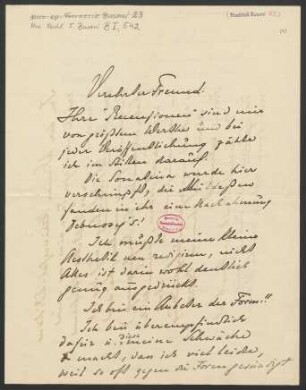 Mus. Nachl. F. Busoni B I, 542
Verehrter Freund.
Ihre "Recensionen" sind mir
von größtem Werthe und bei
jeder Veröffentlichung zähle
ich im Stillen darauf.
Die Sonatina wurde hier
verschimpft, die
fanden in ihr eine Nachahmung
Debussy's!
Ich müßte meine kleine
Aesthetik neu redigiren, nicht
Alles ist darin wohl deutlich
genug ausgedrückt.
Ich bin ein Anbeter der Form!!
Ich bin überempfindlich
dafür u. diese meine Schwäche
macht, dass ich viel leide,
weil so oft gegen die Form gesündigt